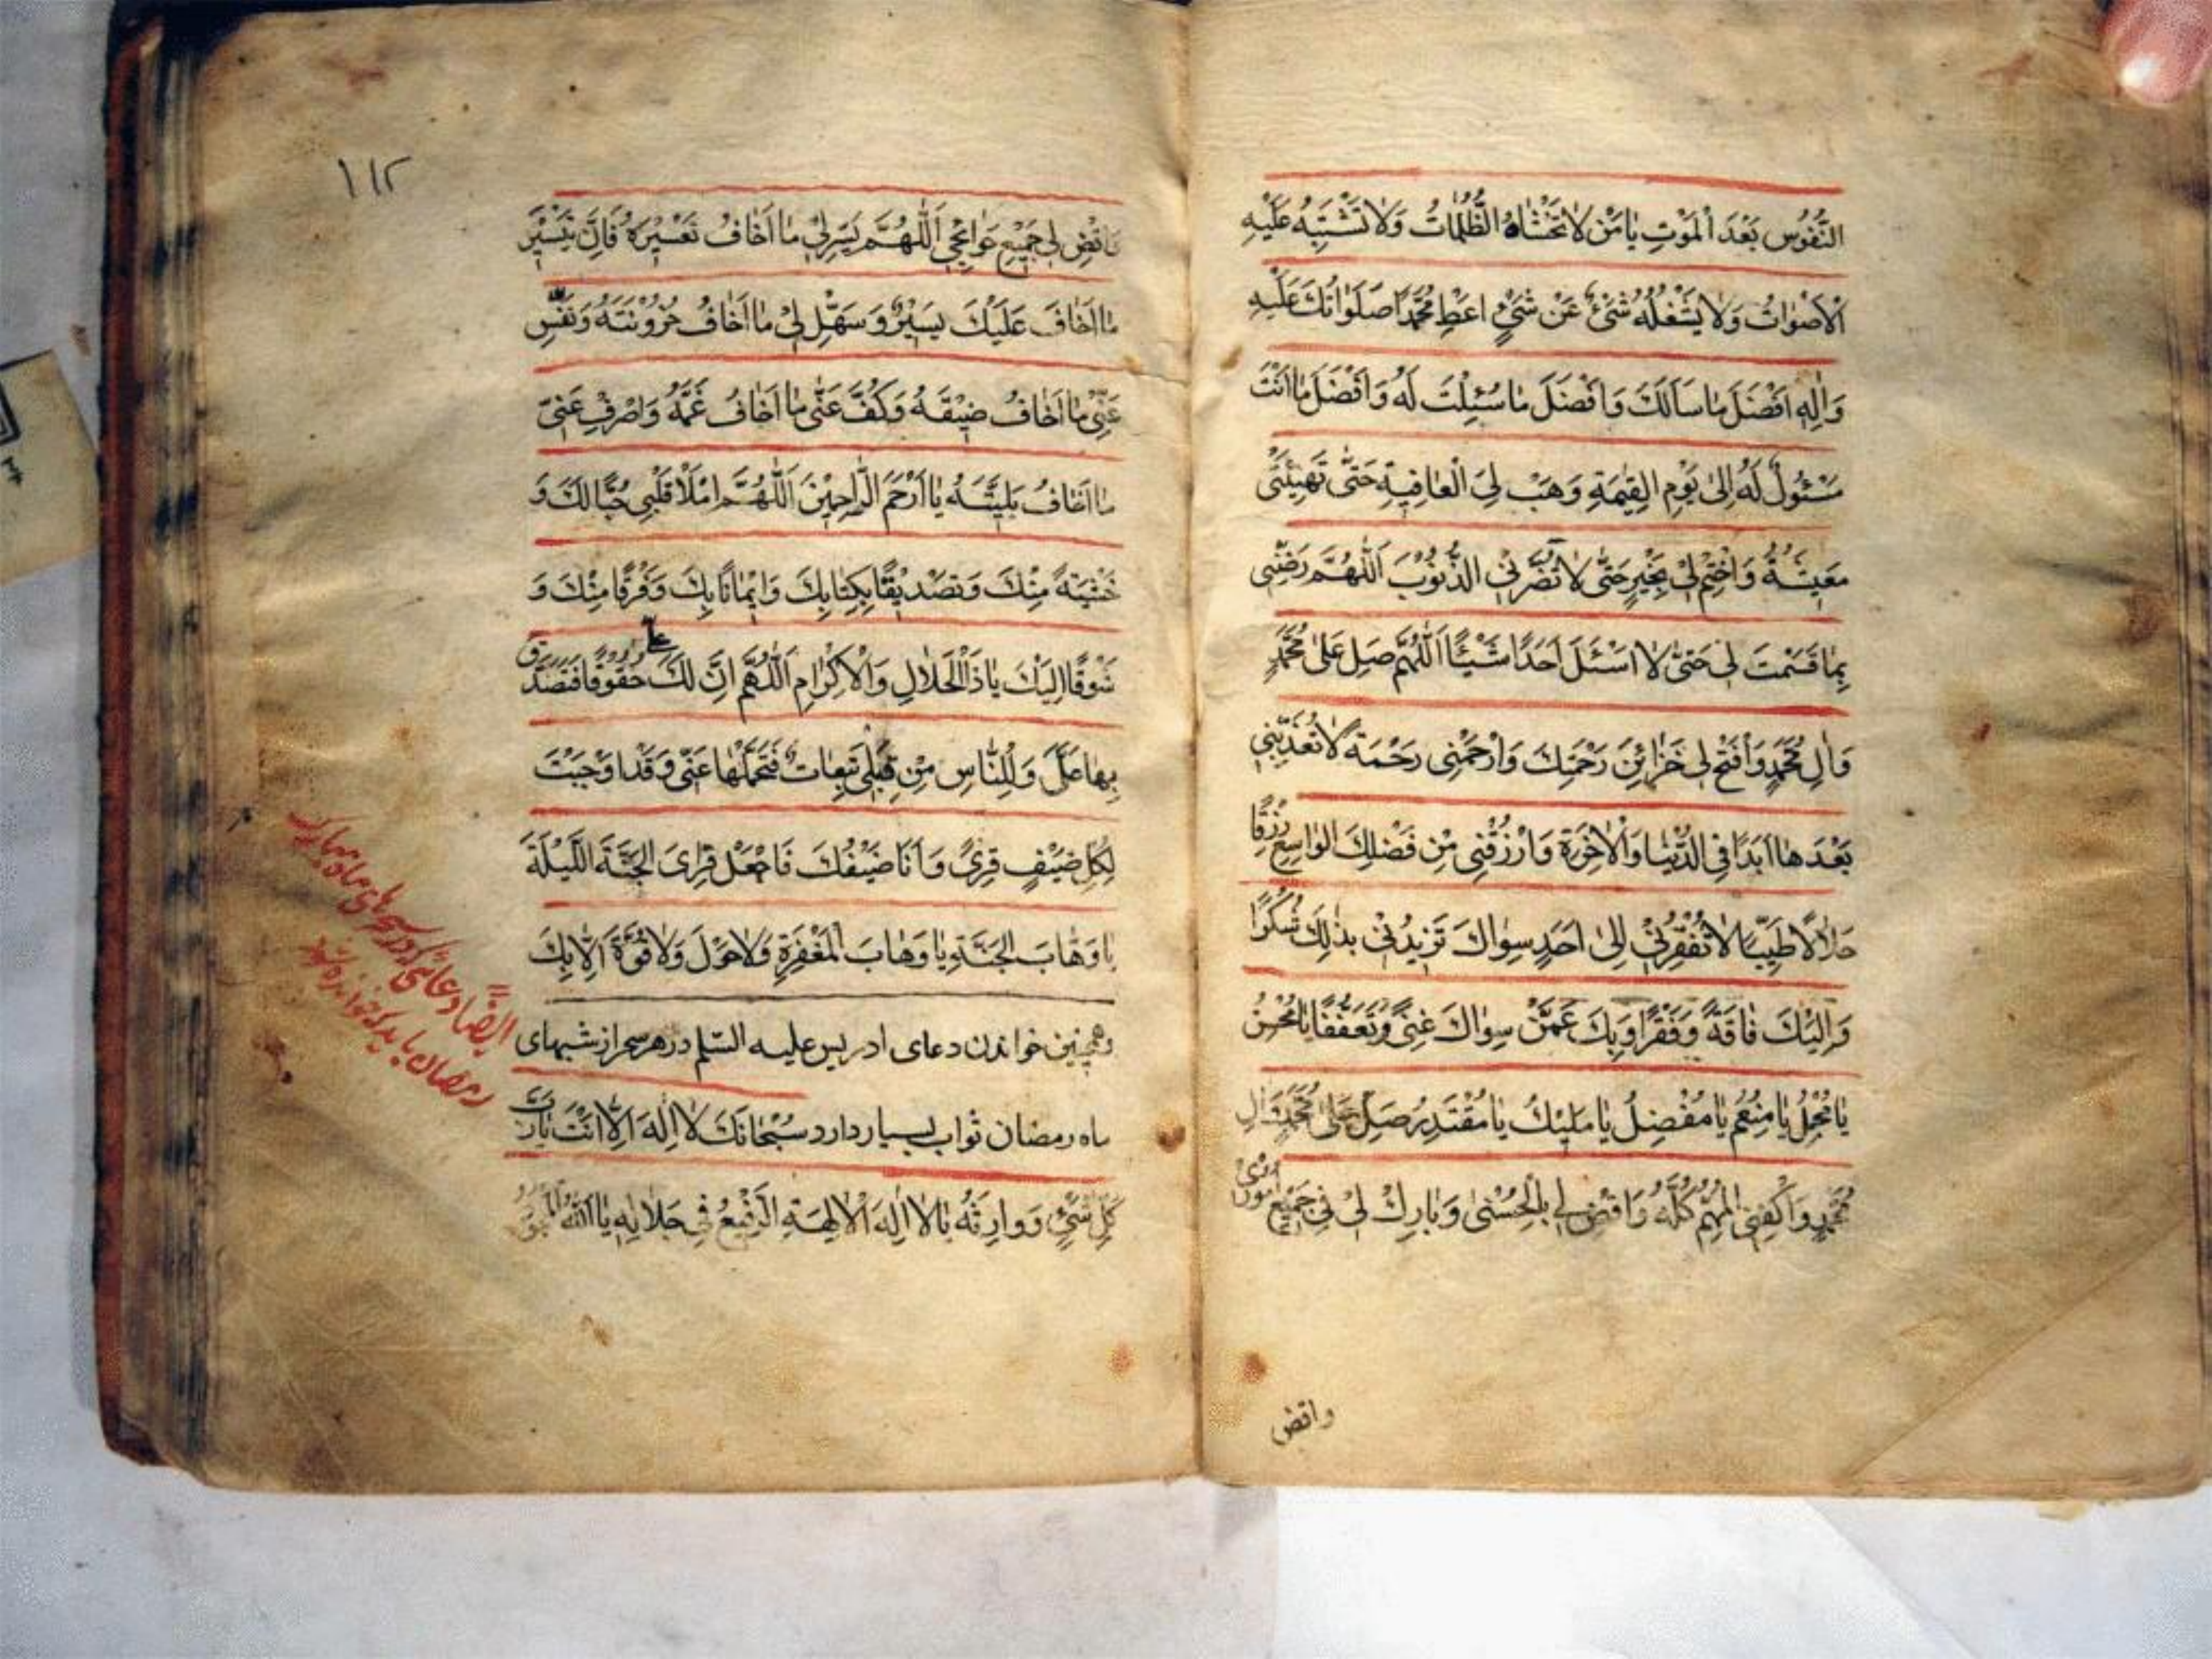 النُّفُوسِ بَعْدَ الْمَوْتِ يَا مَنْ لَا تَغْشَاهُ الظُّلُمَاتُ وَلَا تَشْتَبِهُ عَلَيْهِ
الْأَصْوَاتُ وَلَا يَشْغَلُهُ شَيْءٌ عَنْ شَيْءٍ اعْطِ مُحَمَّدًا صَلَوَاتُكَ عَلَيْهِ
وَالِهِ اَفْضَلَ مَا سَاَلَكَ وَاَفْضَلَ مَا سُئِلْتَ لَهُ وَاَفْضَلَ مَا اَنْتَ
مَسْئُولٌ لَهُ اِلىٰ يَوْمِ الْقِيٰمَةِ وَهَبْ لِيَ الْعَافِيَةَ حَتّٰى تَهْنِئَنِى
مَعِيشَةُ وَاخْتِمْ لِي بِخَيْرٍ حَتّٰى لَا تَضُرَّنِي الذُّنُوبَ اَللّٰهُمَّ رَضِّنِى
بِمَا قَسَمْتَ لِى حَتّٰى لَا اَسْئَلَ اَحَدًا شَيْئًا اَللّٰهُمَّ صَلِ عَلىٰ مُحَمَّدٍ
وَاٰلِ مُحَمَّدٍ وَافْتَحْ لِى خَزَائِنَ رَحْمَتِكَ وَارْحَمْنِى رَحْمَةً لَا تُعَذِّبْنِي
بَعْدَهَا اَبَدًا فِى الدُّنْيَا وَالْاٰخِرَةِ وَارْزُقْنِى مِنْ فَضْلِكَ الْوَاسِعِ رِزْقًا
حَلَالًا طَيِّبًا لَا تُفْقِرْنِي اِلىٰ اَحَدٍ سِوَاكَ تَزِيدُنِي بِذٰلِكَ شُكْرًا
وَاِلَيْكَ فَاقَةً وَفَقْرًا وَبِكَ عَمَّنْ سِوَاكَ غِنًى وَتَعَفُّفًا يَا مُحْسِنُ
يَا مُجْمِلُ يَا مُنْعِمُ يَا مُفْضِلُ يَا مَلِيكُ يَا مُقْتَدِرُ صَلِّ عَلىٰ مُحَمَّدٍ وَاٰلِ
مُحَمَّدٍ وَاكْفِنِى الْمُهِمَّ كُلَّهُ وَاقْضِ لِي بِالْحُسْنىٰ وَبَارِكْ لِي فِي جَمِيعِ امورى
واقض
١١٢
وَاقْضِ لِي جَمِيعِ حَوَائِجِي اَللّٰهُمَّ يَسِّرْ لِي مَا اَخَافُ تَعْسِيرَهُ فَاِنَّ تَيْسِيرَ
مَا اَخَافَ عَلَيْكَ يَسِيرٌ وَسَهِّلْ لِي مَا اَخَافُ حُزُونَتَهُ وَنَفِّسْ
عَنِّى مَا اَخَافُ ضِيقَهُ وَكُفَّ عَنِّى مَا اَخَافُ غَمَّهُ وَاصْرِفْ عَنِّى
مَا اَخَافُ بَلِيَّتَهُ يَا اَرْحَمَ الرَّاحِمِينَ اَللّٰهُمَّ امْلَاْ قَلْبِى حُبًّا لَكَ وَ
خَشْيَةً مِنْكَ وَتَصْدِيقًا بِكِتَابِكَ وَاِيمَانًا بِكَ وَفَرَقًا مِنْكَ وَ
شَوْقًا اِلَيْكَ يَا ذَا الْجَلَالِ وَالْاِكْرَامِ اَللّٰهُمَّ اِنَّ لَكَ حُقُوقًا فَتَصَدَّقْ
بِهَا عَلَىَّ وَلِلنَّاسِ مِنْ قِبَلِى تَبِعَاتٌ فَتَحَمَّلْهَا عَنِّى وَقَدْ اَوْجَبْتَ
لِكُلِّ ضَيْفٍ قِرًى وَاَنَا ضَيْفُكَ فَاجْعَلْ قِرَاىَ الْجَنَّةَ اللَّيْلَةَ
يَا وَهَّابَ الْجَنَّةِ وَيَا وَهَّابَ الْمَغْفِرَةِ وَلَا حَوْلَ وَلَا قُوَّةَ اِلَّا بِكَ
وهمچنین خواندن دعای ادریس علیه السلم در هر سحر از شبهای
ماه رمضان ثواب بسیار دارد سُبْحَانَكَ لَا اِلٰهَ اِلَّا اَنْتَ يَا رَبَّ
كُلِّ شَيْءٍ وَوَارِثَهُ يَا اِلٰهَ الْاٰلِهَةِ الرَّفِيعُ فِي جَلَالِهِ يَا اَللّٰهُ
ایضاً دعائی که در سحرهای ماه مبارک
رمضان باید که خوانده شود